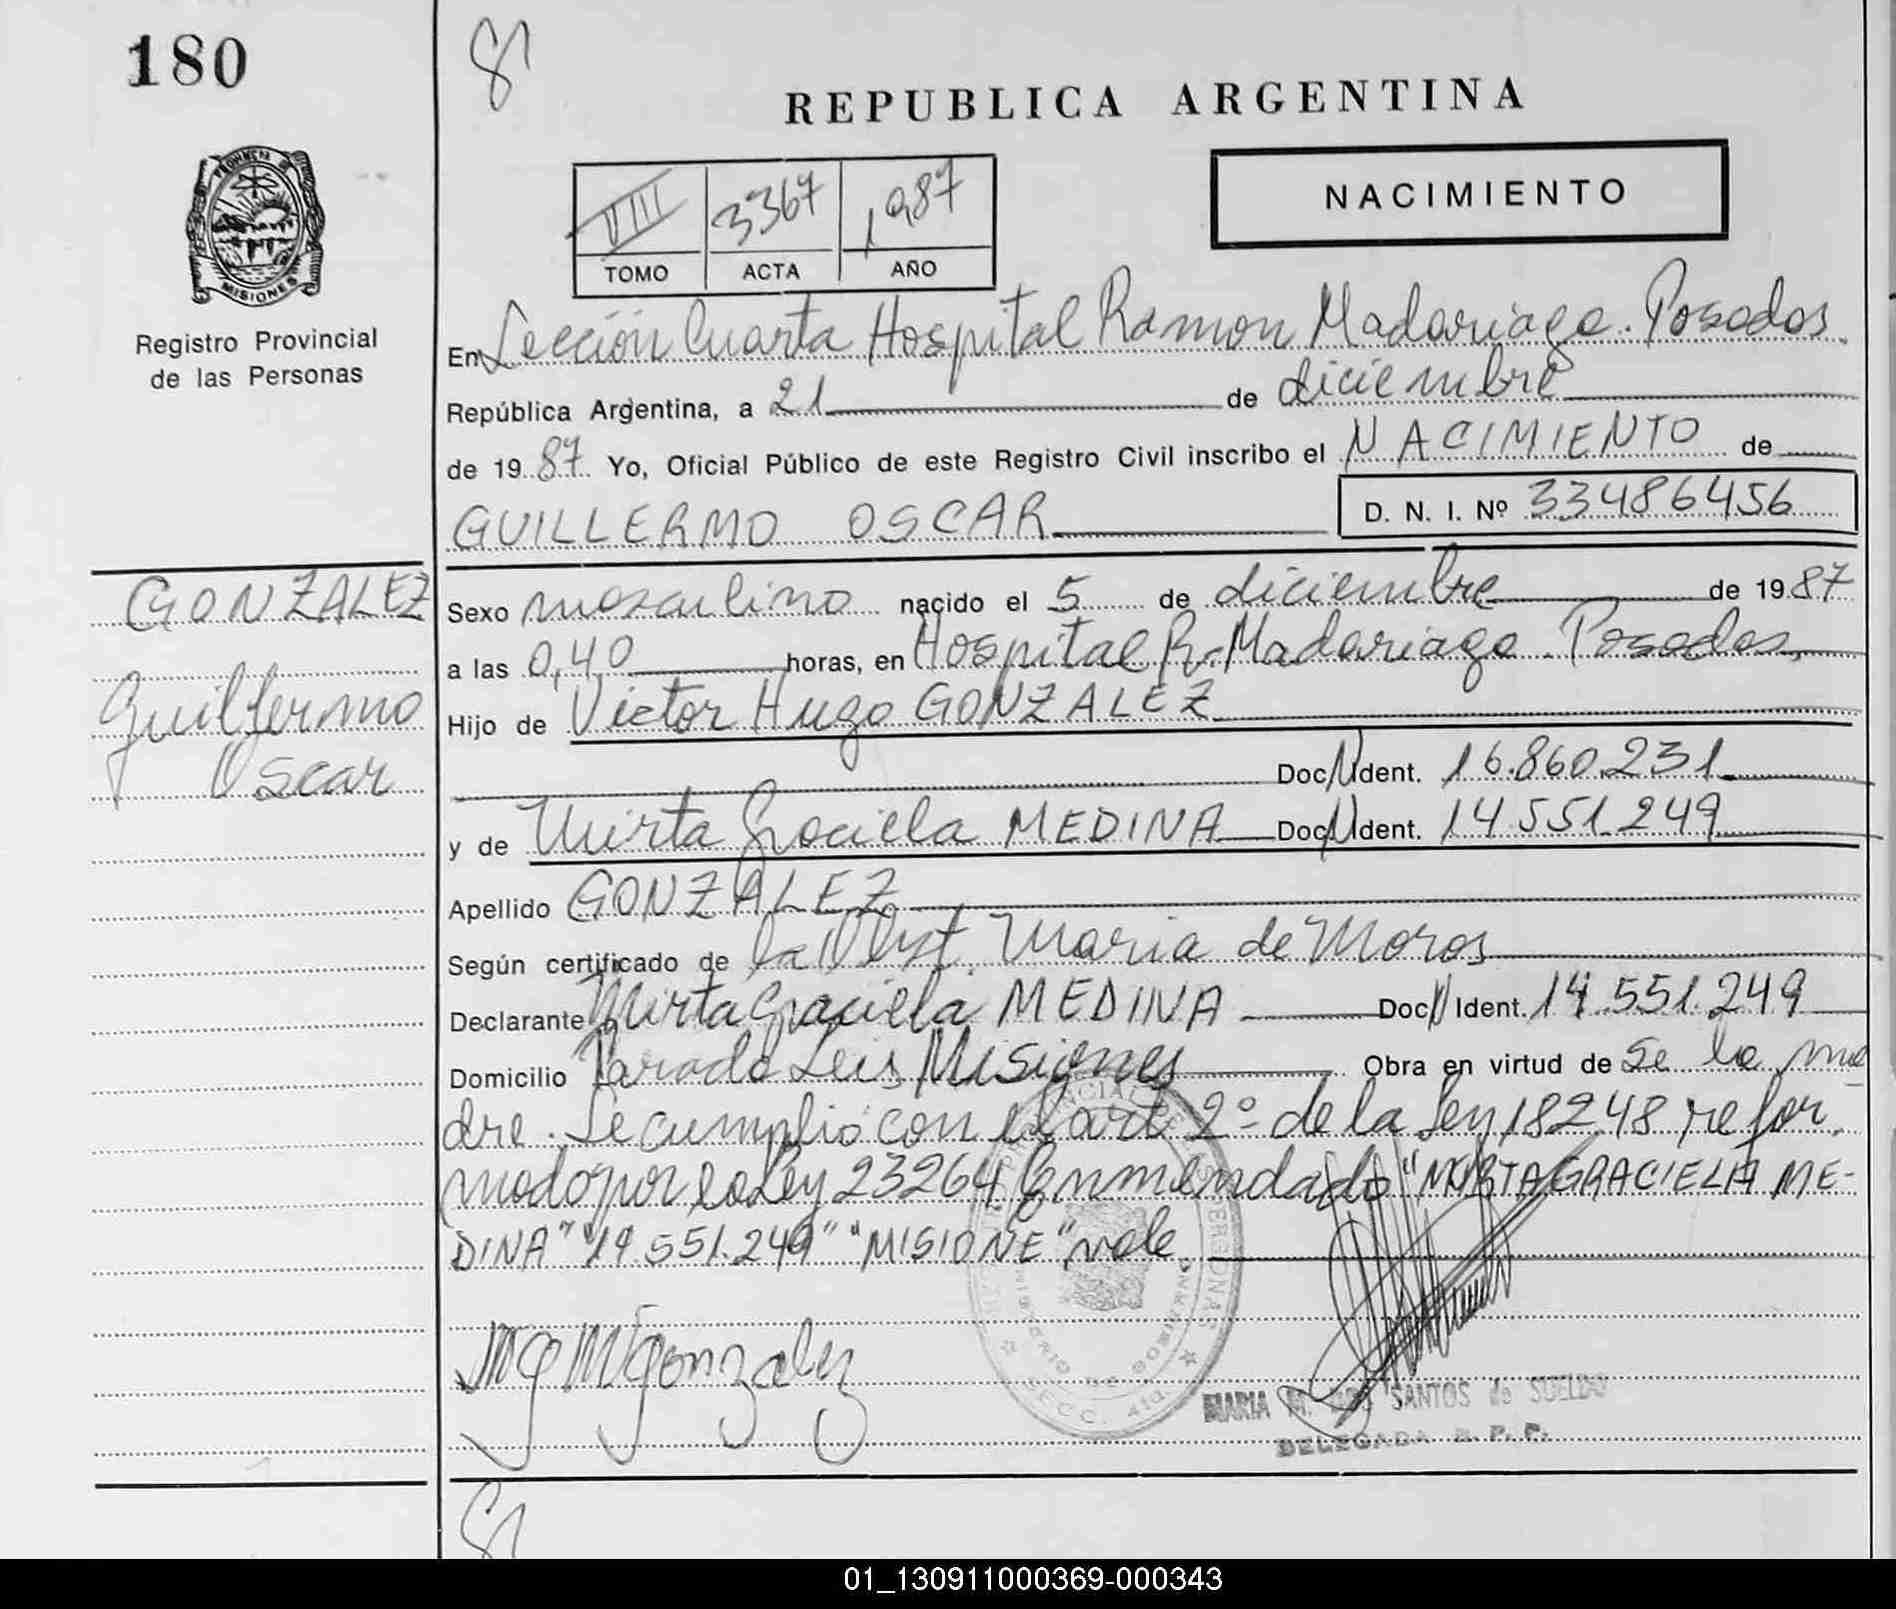 180
REPUBLICA ARGENTINA
NACIMIENTO
VIII 3367 1987
TOMO ACTA AÑO
PROVINCIA DE
MISIONES
Registro Provincial
de las Personas
En Sección Cuarta Hospital Ramon Madariaga. Posadas.
República Argentina, a 21 de diciembre
de 1987 Yo, Oficial Público de este Registro Civil inscribo el NACIMIENTO de
GUILLERMO OSCAR D. N. I. Nº 33486456
GONZALEZ
Guillermo
Oscar
Sexo masculino nacido el 5 de diciembre de 1987
a las 0,40 horas, en Hospital R. Madariaga. Posadas,
Hijo de Victor Hugo GONZALEZ
Doc N Ident. 16.860.231
y de Mirta Graciela MEDINA Doc N Ident. 14.551.249
Apellido GONZALEZ
Según certificado de la Obst. Maria de Moros
Declarante Mirta Graciela MEDINA Doc N Ident. 14.551.249
Domicilio Parada Leis Misiones Obra en virtud de Se la ma
dre. Se cumplió con el art 2º de la Ley 18248 refor
mado por la Ley 23264 Enmendado "MIRTA GRACIELA ME-
DINA" "14.551.249" "MISIONE" vale
MARIA M. DOS SANTOS de SUELDO
DELEGADA R. P. P.
01_130911000369-000343